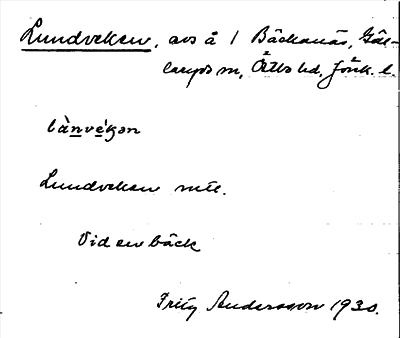 Lundveken, avs å 1 Bäckanäs, Göte-
laryds m, Östbo hd, Jönk. l.
lànvékən
Lundveken mtl.
Vid en bäck
Fritz Andersson 1930.